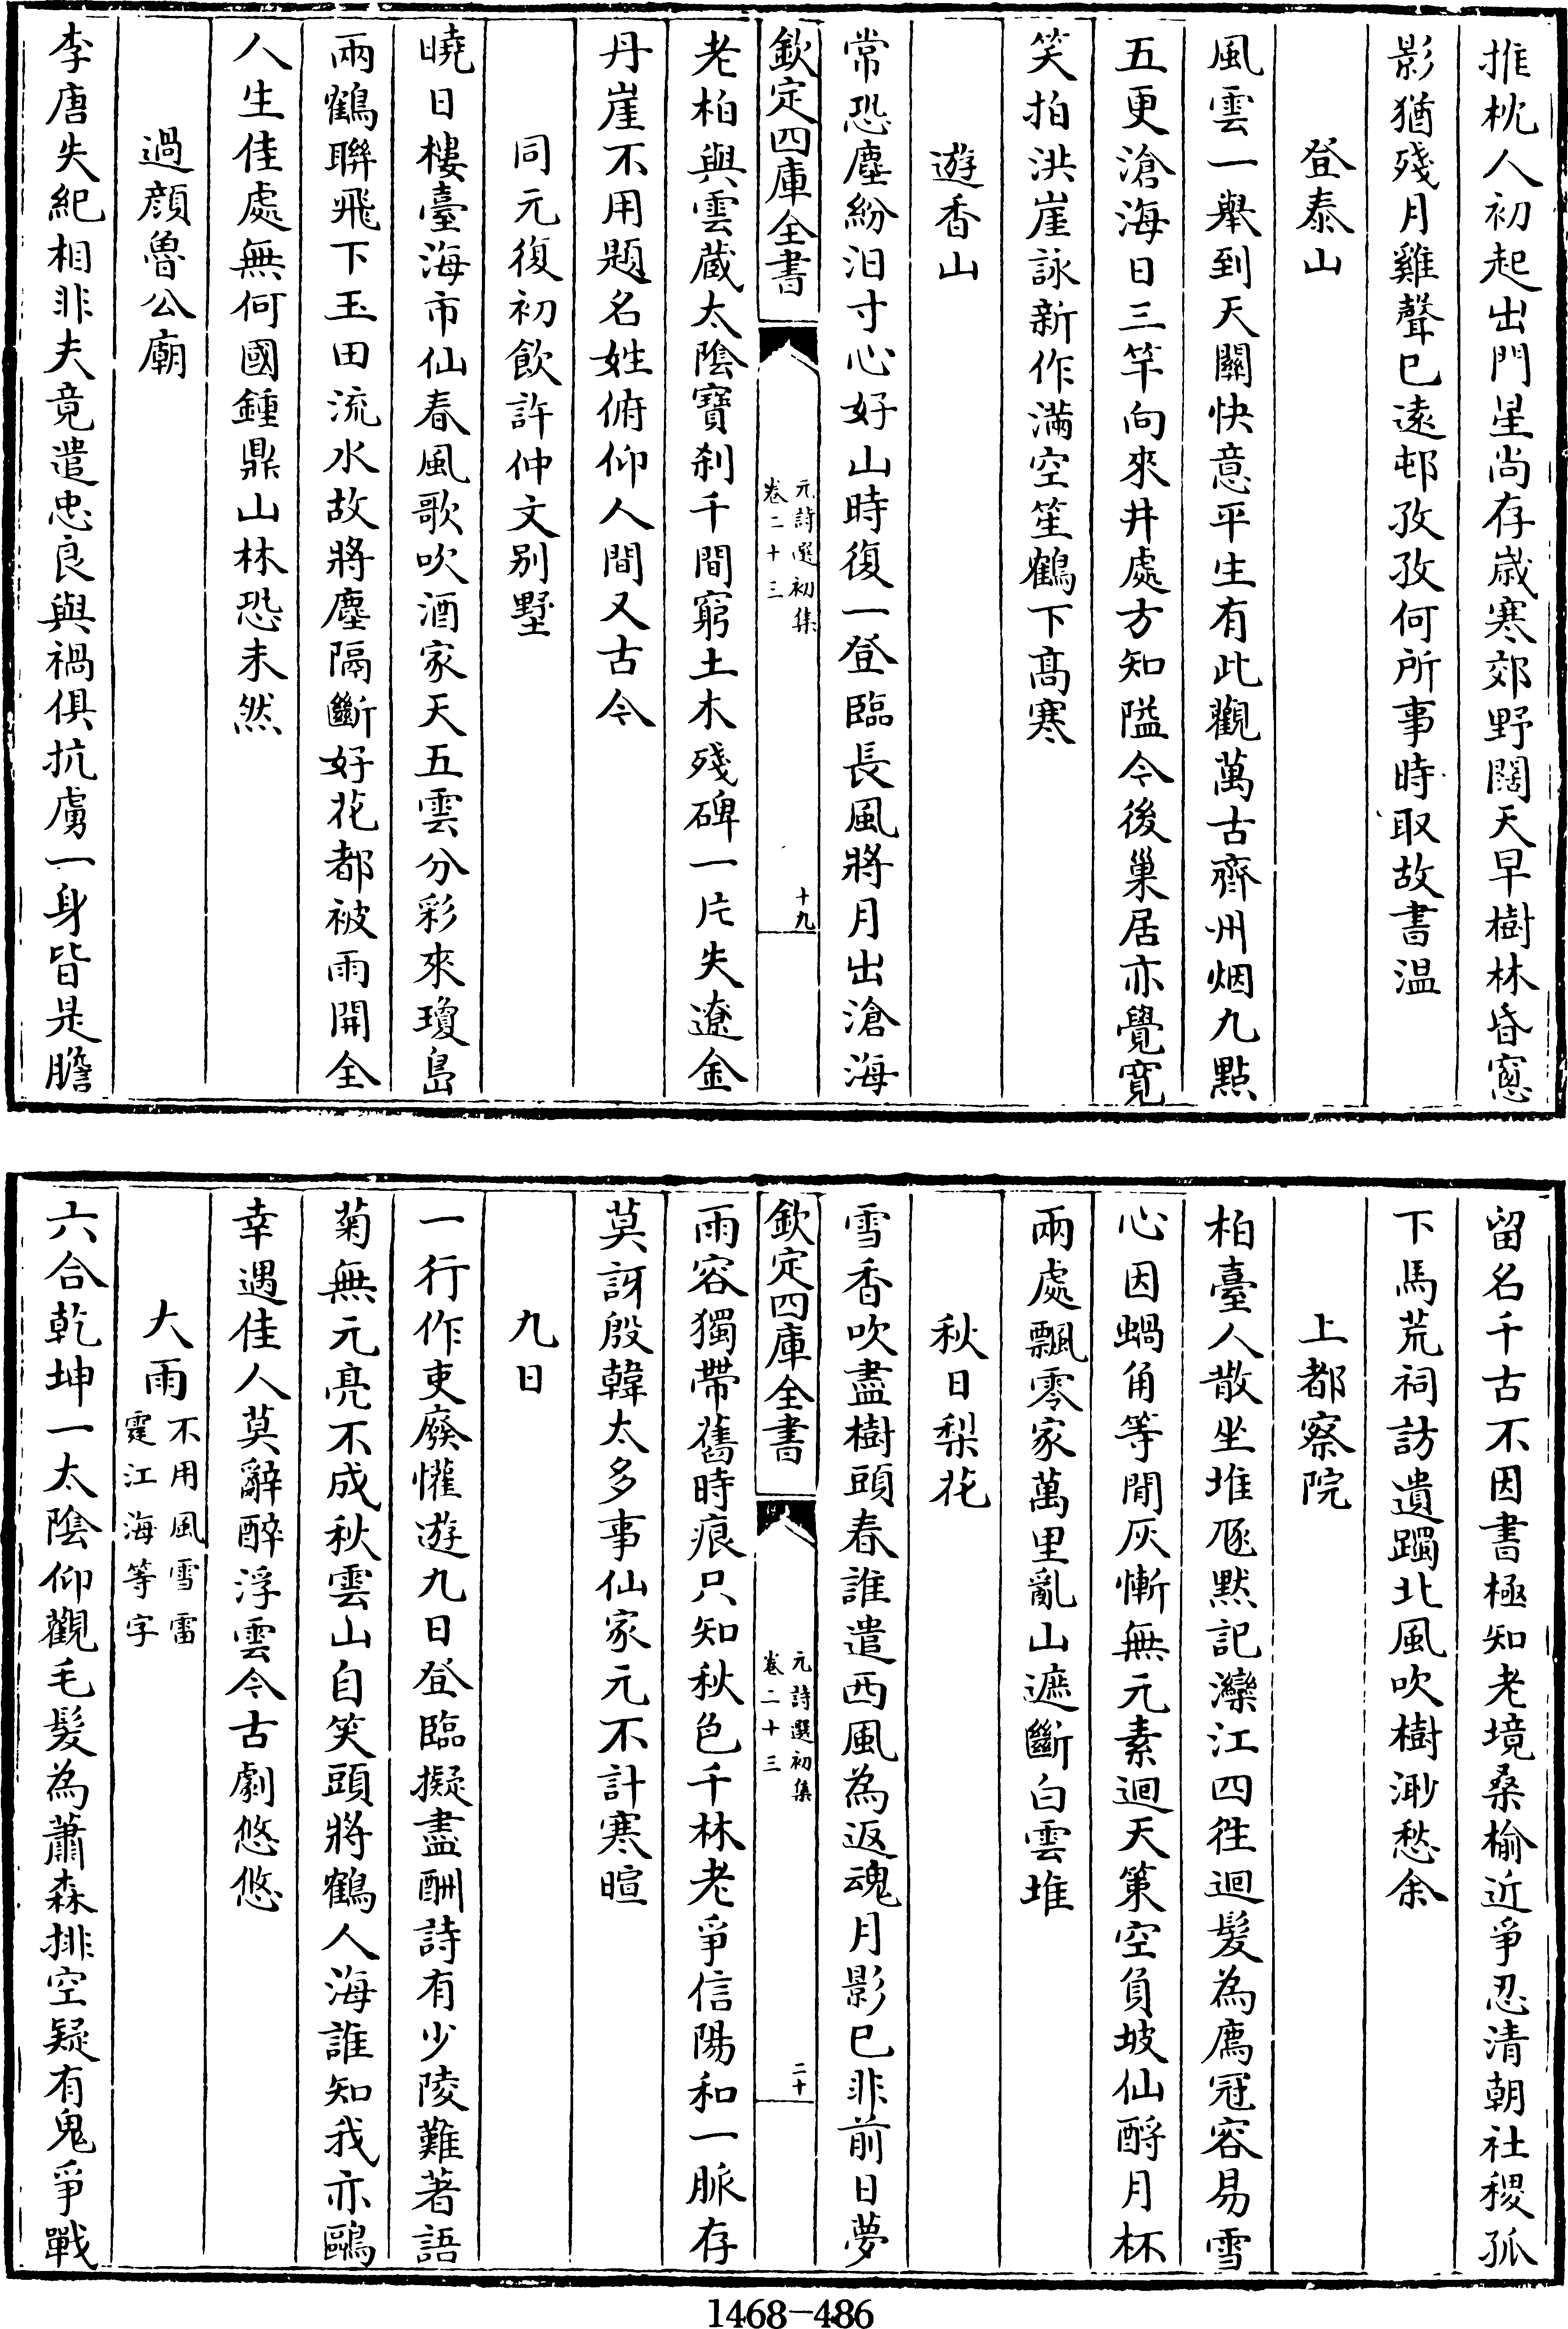 推枕人初起出門星尚存歲寒郊野闊天早樹林昏窻
影猶殘月雞聲已遠邨孜孜何所事時取故書温
登泰山
風雲一舉到天關快意平生有此觀萬古齊州烟九點
五更滄海日三竿向來井處方知隘今後巢居亦覺寛
笑拍洪崖詠新作滿空笙鶴下髙寒
遊香山
常恐塵紛汩寸心好山時復一登臨長風將月出滄海
欽定四庫全書
元詩選初集
卷二十三
十九
老柏與雲藏太陰寶刹千間窮土木殘碑一片失遼金
丹崖不用題名姓俯仰人間又古今
同元復初飲許仲文别墅
曉日樓臺海市仙春風歌吹酒家天五雲分彩來瓊島
兩鶴聯飛下玉田流水故將塵隔斷好花都被雨開全
人生佳處無何國鍾鼎山林恐未然
過顔魯公廟
李唐失紀相非夫竟遣忠良與禍俱抗虜一身皆是膽
留名千古不因書極知老境桑榆近爭忍清朝社稷孤
下馬荒祠訪遺躅北風吹樹渺愁余
上都察院
柏臺人散坐堆豗默記灤江四徃迴髮為廌冠容易雪
心因蝸角等閒灰慚無元素迴天䇿空負坡仙酹月杯
兩處飄零家萬里亂山遮斷白雲堆
秋日梨花
雪香吹盡樹頭春誰遣西風為返魂月影已非前日夢
欽定四庫全書
元詩選初集
卷二十三
二十
雨容獨帶舊時痕只知秋色千林老爭信陽和一脈存
莫訝殷韓太多事仙家元不計寒暄
九日
一行作吏廢懽遊九日登臨擬盡酬詩有少陵難著語
菊無元亮不成秋雲山自笑頭將鶴人海誰知我亦鷗
幸遇佳人莫辭醉浮雲今古劇悠悠
大雨不用風雪雷
霆江海等字
六合乾坤一太陰仰觀毛髮為蕭森排空疑有鬼爭戰
1468-486